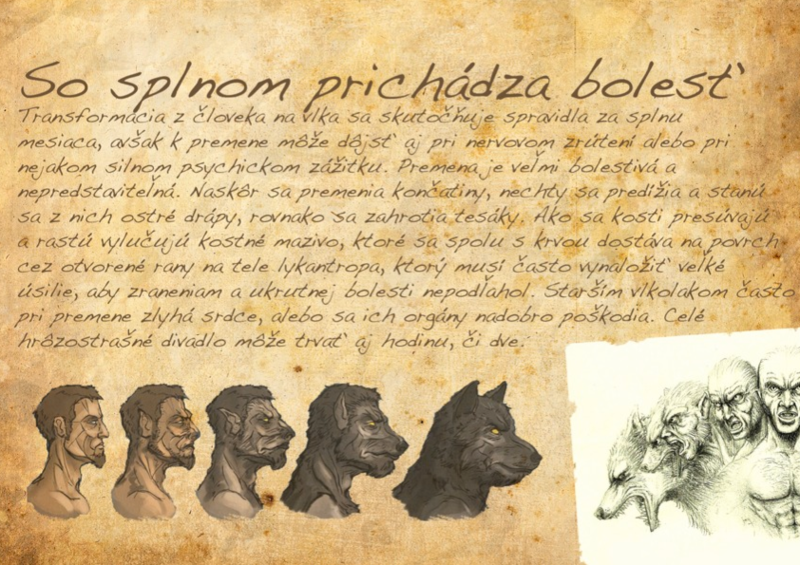 So splnom prichádza bolesť
Transformácia z človeka na vlka sa skutočňuje spravidla za splnu
mesiaca, avšak k premene môže dôjsť aj pri nervovom zrútení alebo pri
nejakom silnom psychickom zážitku. Premena je veľmi bolestivá a
nepredstaviteľná. Naskôr sa premenia končatiny, nechty sa predížia a stanú
sa z nich ostré drápy, rovnako sa zahrotia tesáky. Ako sa kosti presúvajú
a rastú vylučujú kostné mazivo, ktoré sa spolu s krvou dostáva na povrch
cez otvorené rany na tele lykantropa, ktorý musí často vynaložiť veľké
úsilie, aby zraneniam a ukrutnej bolesti nepodľahol. Starším vlkolakom často
pri premene zlyhá srdce, alebo sa ich orgány nadobro poškodia. Celé
hrôzostrašné divadlo môže trvať aj hodinu, či dve.